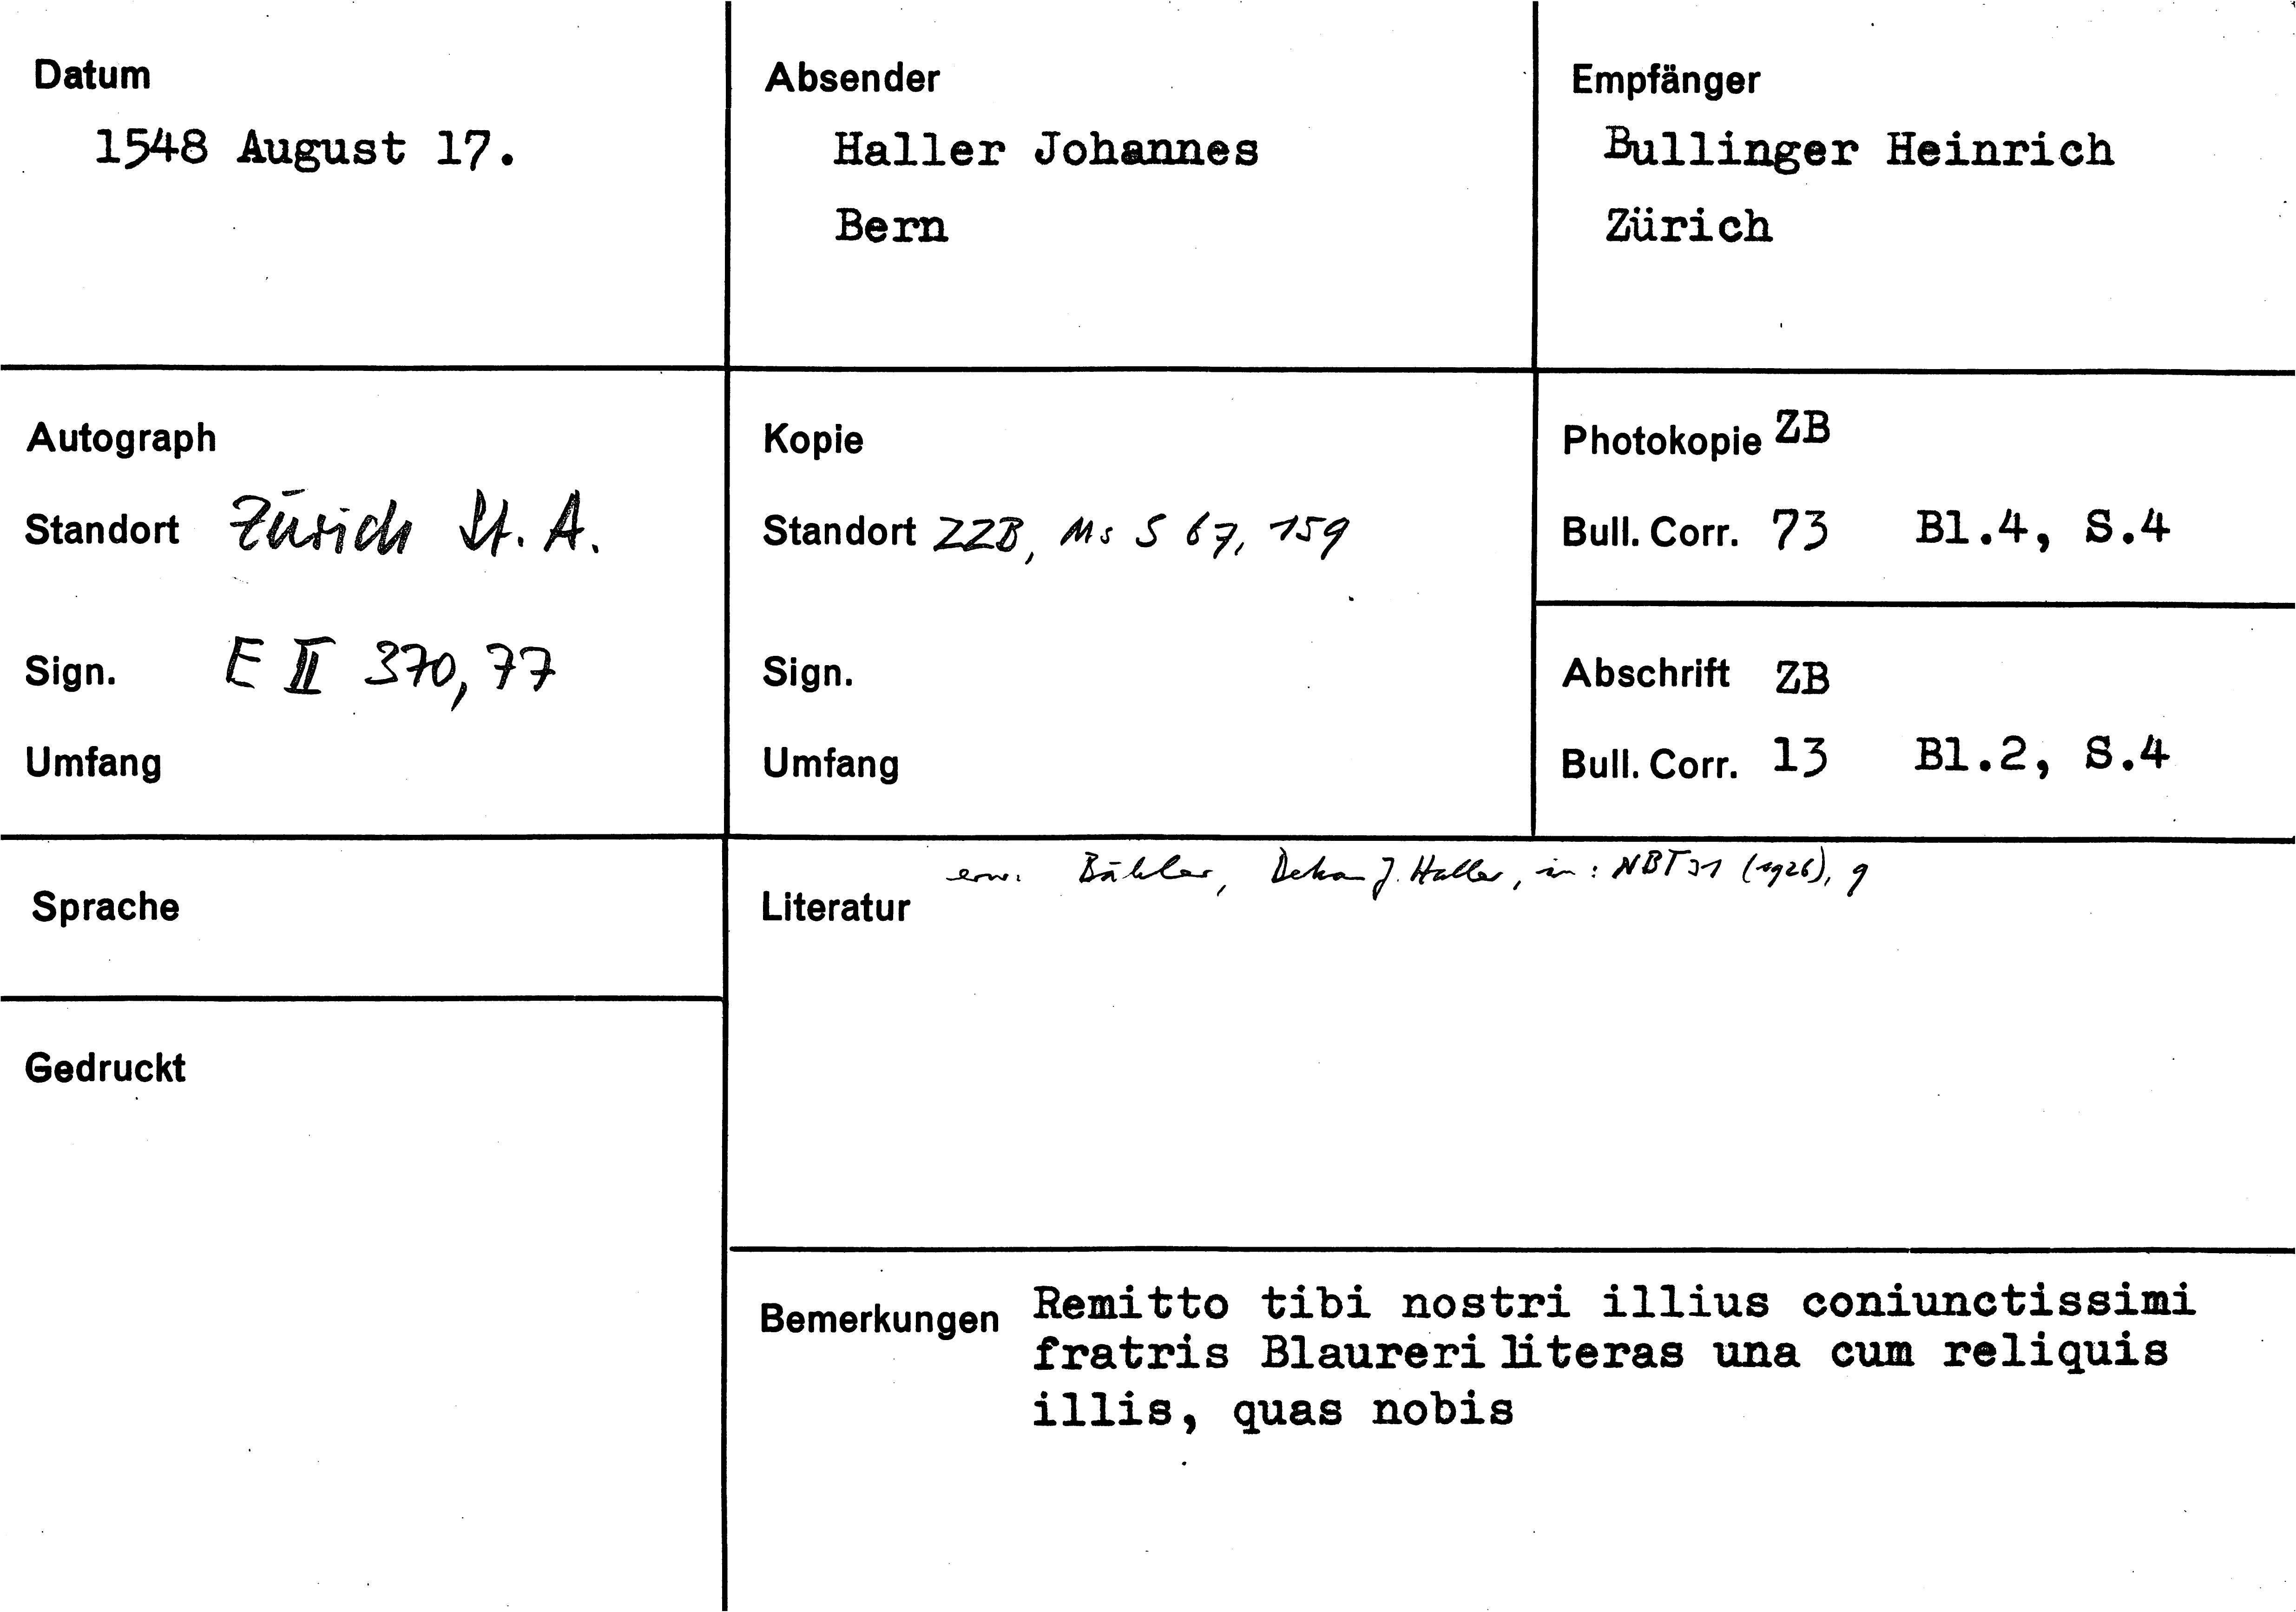 Datum
1548 August 17.
Absender
Haller Johannes
Bern
Empfänger
Bullinger Heinrich
Zürich
Autograph
Standort Zürich St. A.
Sign. E II 370, 77
Umfang
Kopie
Standort ZZB, Ms S 67, 159
Sign.
Umfang
Photokopie ZB
Bull. Corr. 73 Bl.4, S.4
Abschrift ZB
Bull. Corr. 13 Bl.2, S.4
Sprache
Gedruckt
erw. Bähler, Dekan J. Haller, in: NBT 31 (1926), 9
Literatur
Bemerkungen Remitto tibi nostri illius coniunctissimi
fratris Blaureri literas una cum reliquis
illis, quas nobis